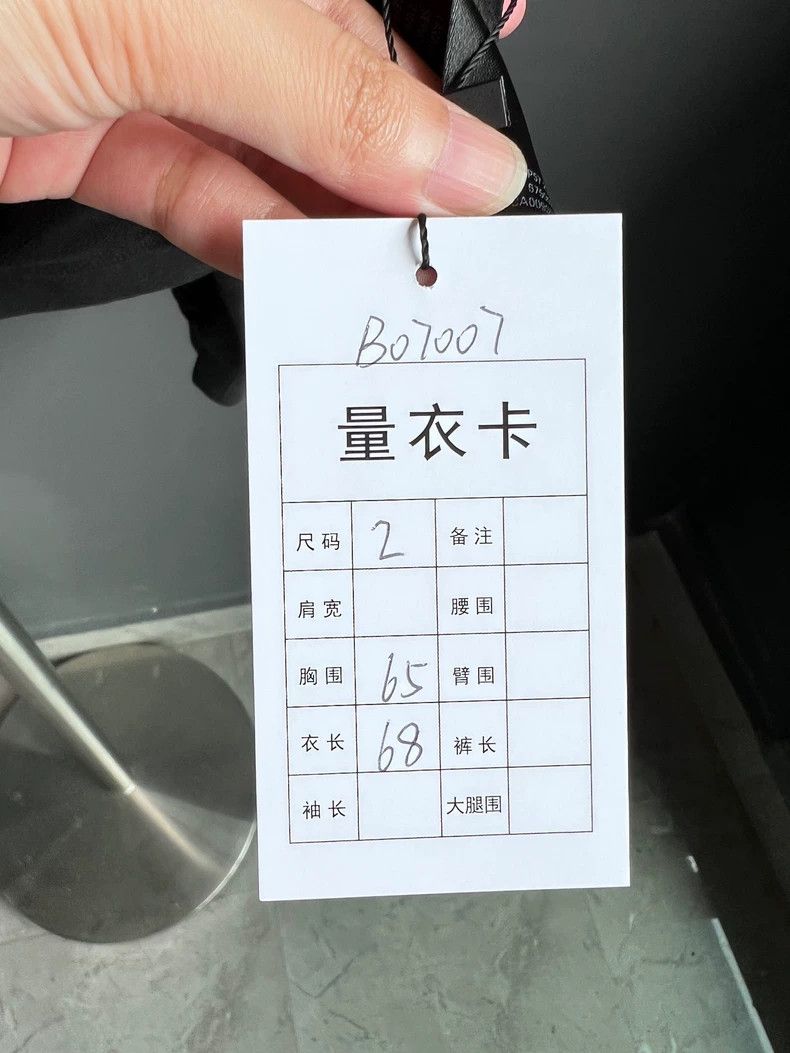 B07007
量衣卡
尺码 2 备注
肩宽 腰围
胸围 65 臂围
衣长 68 裤长
袖长 大腿围